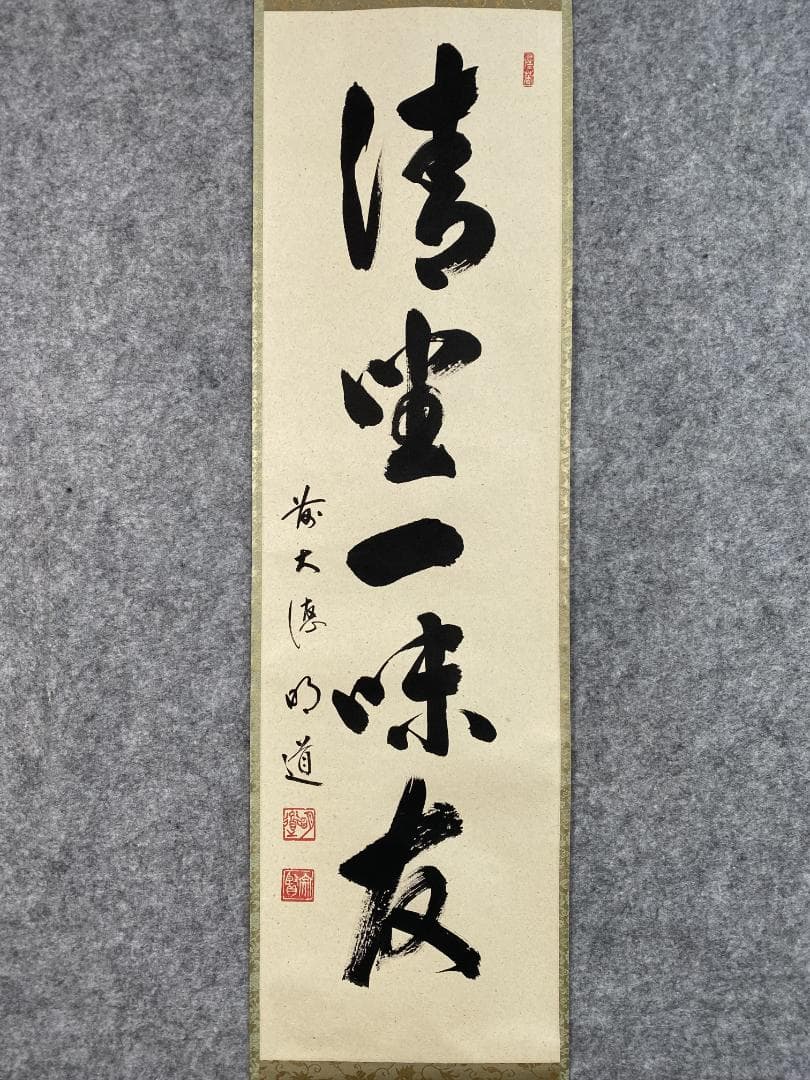 清坐一味友
前大徳明道